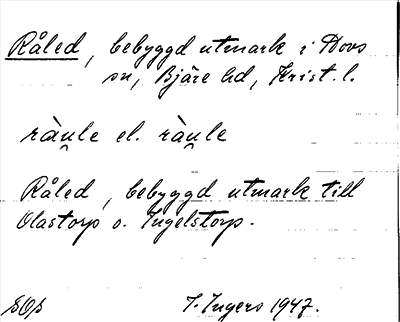 Råled, bebyggd utmark i Hovs
sn, Bjäre hd, Krist. l.
ràu̯le el. ràu̯le
Råled, bebyggd utmark till
Olastorp o. Ingelstorp.
I. Ingers 1947.